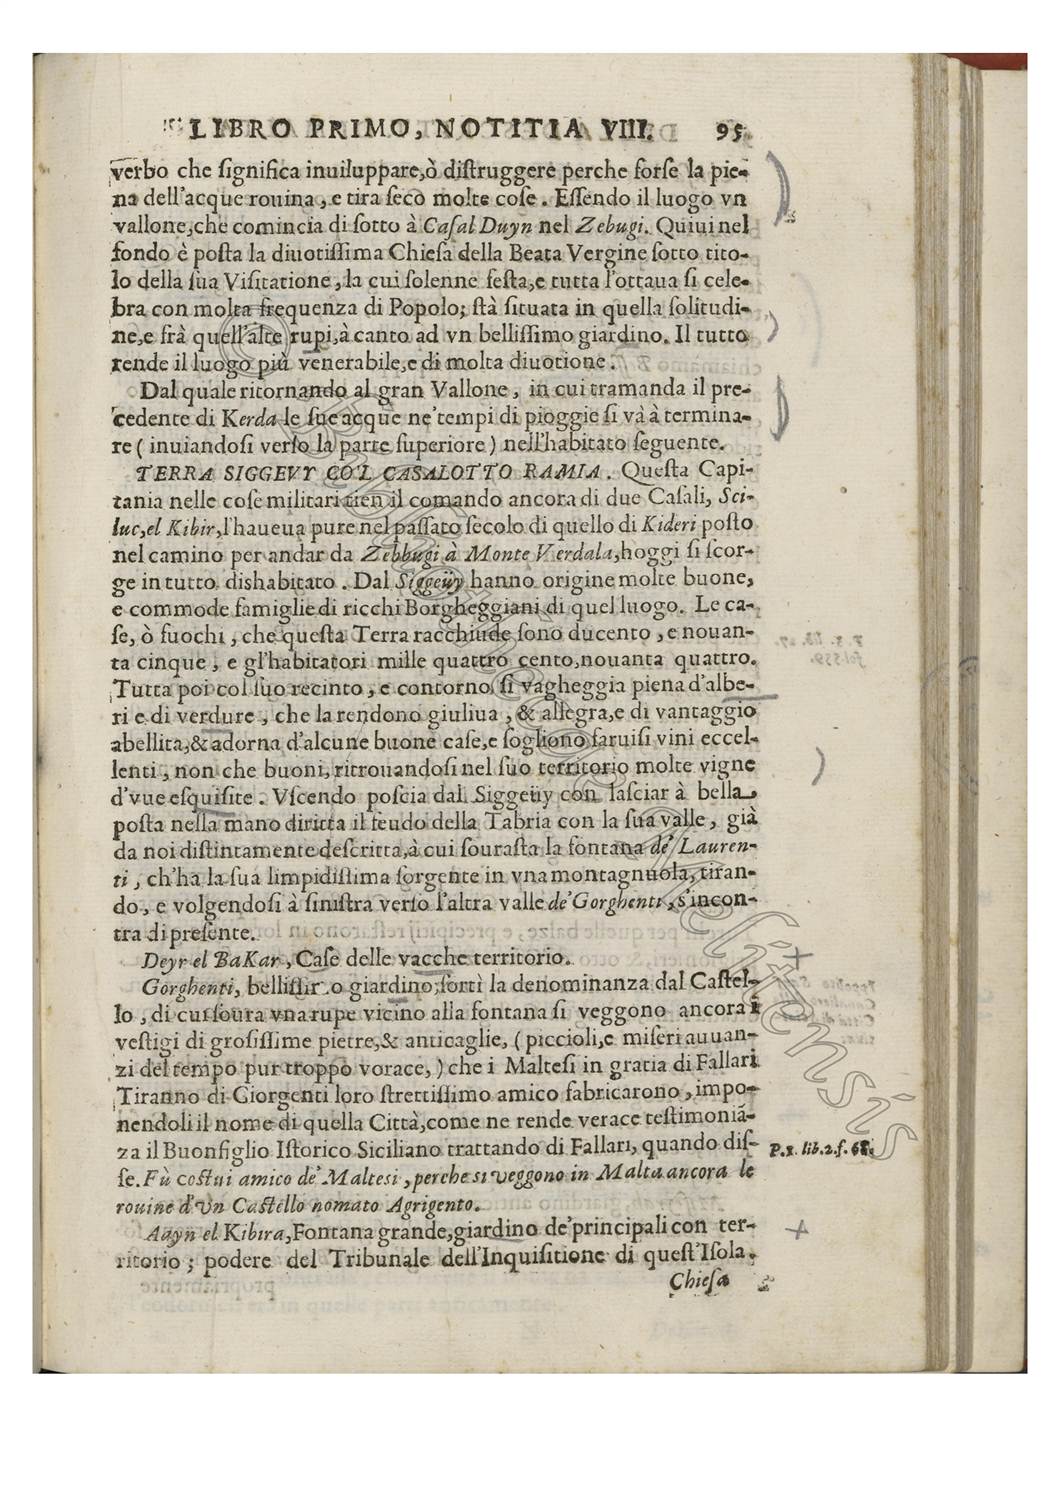 LIBRO PRIMO, NOTITIA VIII. 95
verbo che ſignifica inuiluppare,ò diſtruggere perche forſe la pie-
na dell'acque rouina, e tira ſeco molte coſe. Eſſendo il luogo vn
vallone,che comincia di ſotto à Caſal Duyn nel Zebugi. Quiui nel
fondo è poſta la diuotiſſima Chieſa della Beata Vergine ſotto tito-
lo della ſua Viſitatione, la cui ſolenne feſta,e tutta l'ottaua ſi cele-
bra con molta frequenza di Popolo; ſtà ſituata in quella ſolitudi-
ne,e frà quell'alte rupi,à canto ad vn belliſſimo giardino. Il tutto
rende il luogo più venerabile,e di molta diuotione.
Dal quale ritornando al gran Vallone, in cui tramanda il pre-
cedente di Kerda le ſue acque ne'tempi di pioggie ſi và à termina-
re ( inuiandoſi verſo la parte ſuperiore ) nell'habitato ſeguente.
TERRA SIGGEVY CO'L CASALOTTO RAMIA. Queſta Capi-
tania nelle coſe militari tien il comando ancora di due Caſali, Sci-
luc,el Kibir,l'haueua pure nel paſſato ſecolo di quello di Kideri poſto
nel camino per andar da Zebbugi à Monte Verdala,hoggi ſi ſcor-
ge in tutto dishabitato. Dal Siggeüy hanno origine molte buone,
e commode famiglie di ricchi Borgheggiani di quel luogo. Le ca-
ſe, ò fuochi, che queſta Terra racchiude ſono ducento, e nouan-
ta cinque, e gl'habitatori mille quattro cento,nouanta quattro.
Tutta poi col ſuo recinto, e contorno ſi vagheggia piena d'albe-
ri e di verdure, che la rendono giuliua, & allegra,e di vantaggio
abellita,& adorna d'alcune buone caſe,e ſogliono faruiſi vini eccel-
lenti, non che buoni, ritrouandoſi nel ſuo territorio molte vigne
d'vue eſquiſite. Vſcendo poſcia dal Siggeüy con laſciar à bella
poſta nella mano diritta il feudo della Tabria con la ſua valle, già
da noi diſtintamente deſcritta,à cui ſouraſta la fontana de' Lauren-
ti, ch'ha la ſua limpidiſſima ſorgente in vna montagnuola, tiran-
do, e volgendoſi à ſiniſtra verſo l'altra valle de'Gorghenti, s'incon-
tra di preſente.
Deyr el BaKar, Caſe delle vacche territorio.
Gorghenti, belliſſimo giardino;ſortì la denominanza dal Caſtel-
lo, di cui ſoura vna rupe vicino alla fontana ſi veggono ancora i
veſtigi di groſiſſime pietre,& anticaglie, (piccioli,e miſeri auuan-
zi del tempo pur troppo vorace,) che i Malteſi in gratia di Fallari
Tiranno di Giorgenti loro ſtrettiſſimo amico fabricarono, impo-
nendoli il nome di quella Città,come ne rende verace teſtimoniã-
za il Buonfiglio Iſtorico Siciliano trattando di Fallari, quando diſ-
ſe. Fù coſtui amico de' Malteſi, perche si veggono in Malta ancora le
rouine d'vn Caſtello nomato Agrigento.
P.1. lib.2.f.68.
Aayn el Kibira,Fontana grande,giardino de'principali con ter-
ritorio; podere del Tribunale dell'Inquiſitione di queſt'Iſola.
Chieſa
© Bibliotheca Melitensis